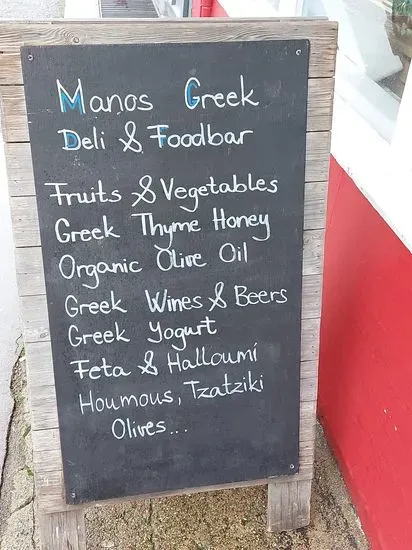 Manos Greek
Deli & Foodbar
Fruits & Vegetables
Greek Thyme Honey
Organic Olive Oil
Greek Wines & Beers
Greek Yogurt
Feta & Halloumi
Houmous, Tzatziki
Olives...